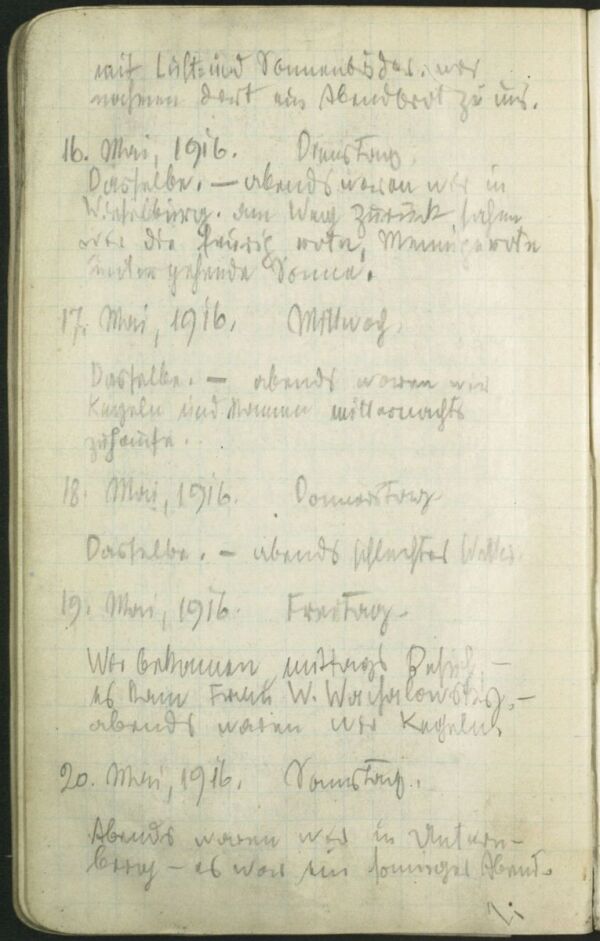 mit Luft= und Sonnenbäder. wir
nahmen dort ein Abendbrot zu uns.
16. Mai, 1916. Dienstag.
Dasselbe. — abends waren wir in
Wieselburg. am Weg zurück sahen
wir die feurig rote,
untergehende Sonne.
17. Mai, 1916. Mittwoch.
Dasselbe. — abends waren wir
Kegeln und kamen mitternachts
zuhause.
18. Mai, 1916. Donnerstag
Dasselbe. — abends schlechtes Wetter.
19. Mai, 1916. Freitag.
Wir bekamen mittags Besuch, —
es kam Frau W. —
abends waren wir Kegeln.
20. Mai, 1916. Samstag.
Abends waren wir in
berg — es war ein sonniger Abend.